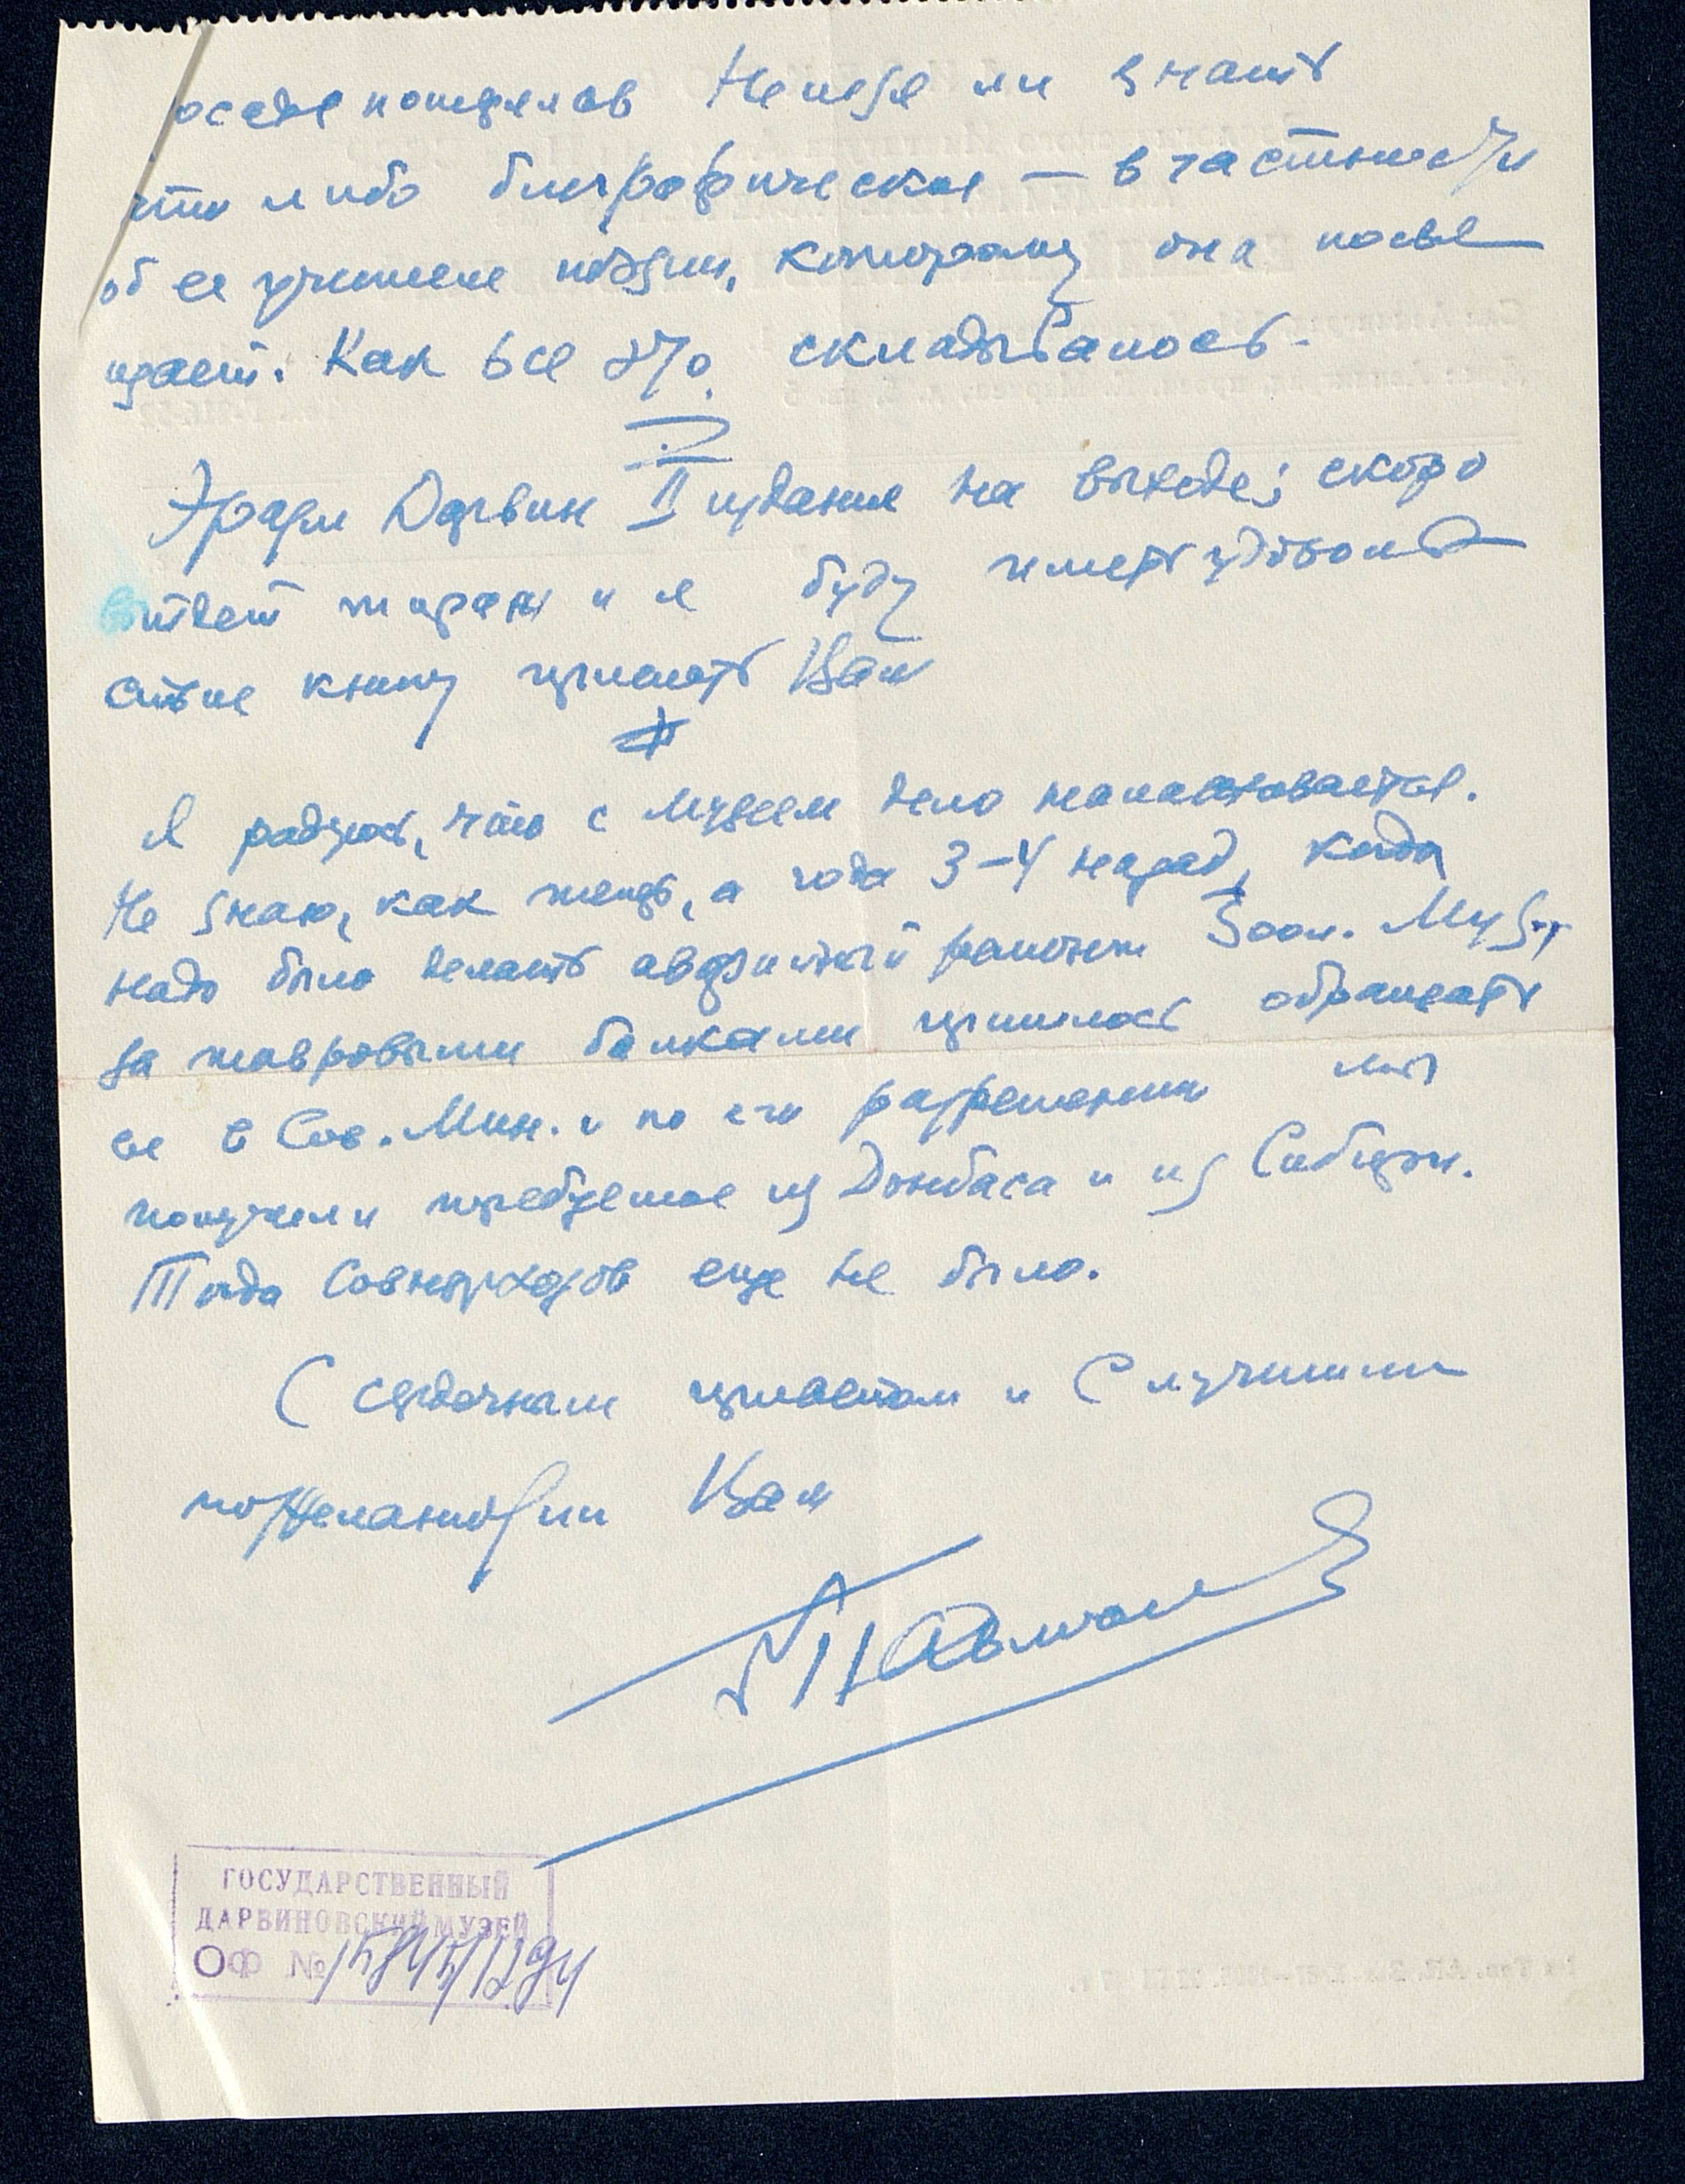 Нельзя ли знать
что либо биографическое — в частности
об ее учителе поэзии, которому она посвя
щает. Как все это складывалось.
Эразм Дарвин II издания на выходе; скоро
выйдет тираж и я буду иметь удоволь
ствие книгу прислать Вам
Я радуюсь, что с Музеем дело налаживается.
Не знаю, как теперь, а года 3–4 назад, когда
надо было делать аварийный ремонт Зоол. Музея
за тавровыми балками пришлось обращать
ся в Сов. Мин. и по его разрешению мы
получили требуемое из Донбаса и из Сибири.
Тогда Совнархозов еще не было.
С сердечным приветом и с лучшими
пожеланиями Вам
ГОСУДАРСТВЕННЫЙ
ДАРВИНОВСКИЙ МУЗЕЙ
ОФ №